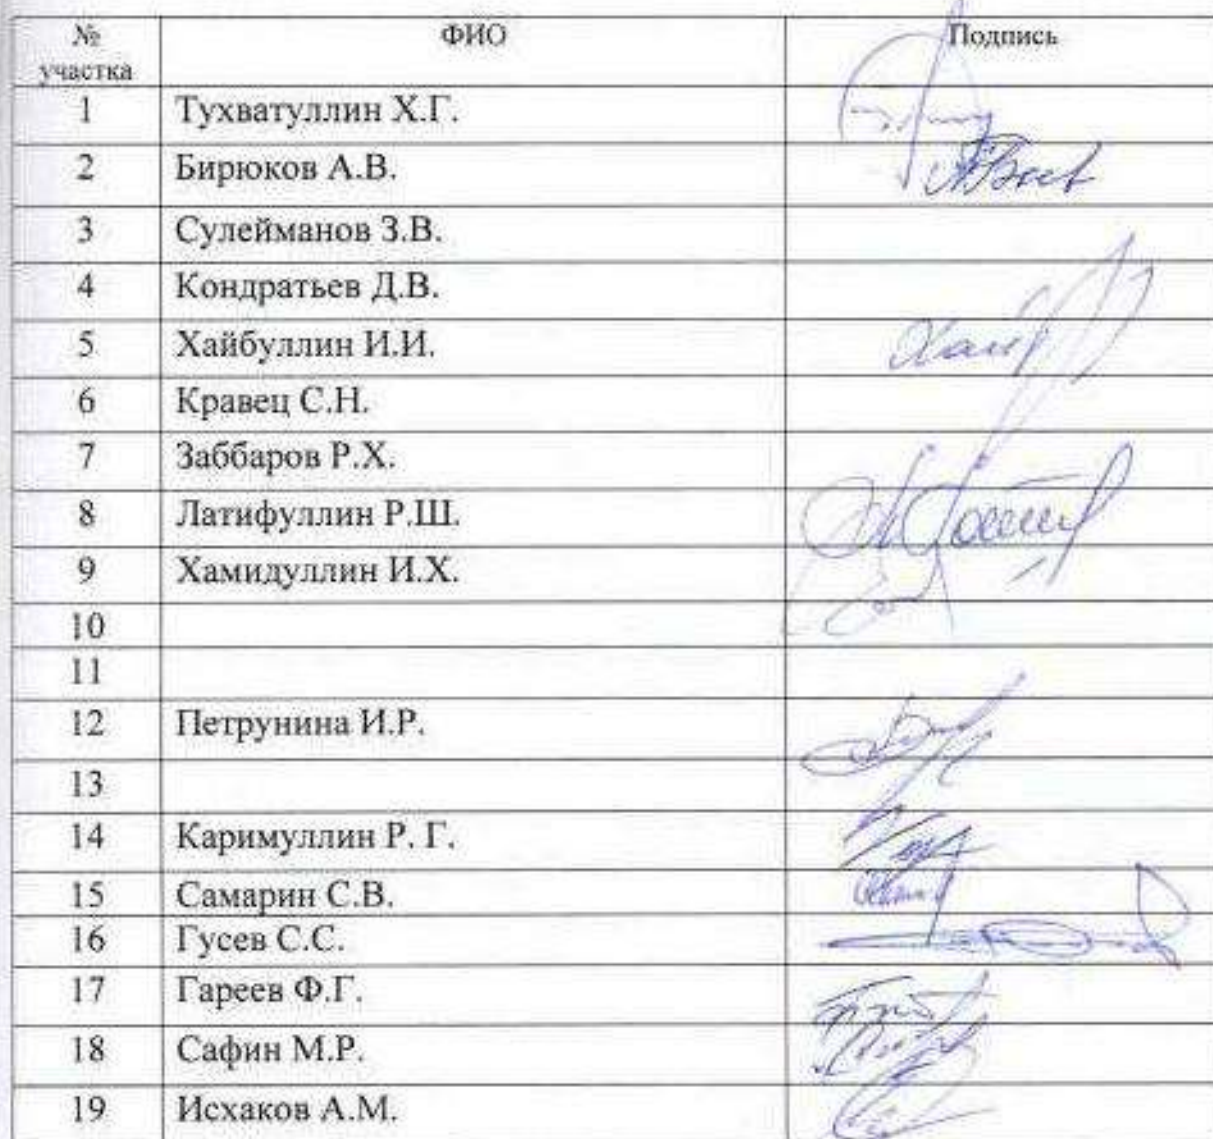 № участка ФИО Подпись
1 Тухватуллин Х.Г.
2 Бирюков А.В.
3 Сулейманов З.В.
4 Кондратьев Д.В.
5 Хайбуллин И.И.
6 Кравец С.Н.
7 Заббаров Р.Х.
8 Латифуллин Р.Ш.
9 Хамидуллин И.Х.
10
11
12 Петрунина И.Р.
13
14 Каримуллин Р. Г.
15 Самарин С.В.
16 Гусев С.С.
17 Гареев Ф.Г.
18 Сафин М.Р.
19 Исхаков А.М.